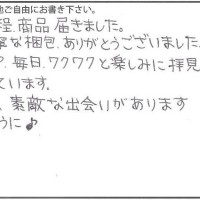 他ご自由にお書き下さい。
程、商品届きました。
寧な梱包、ありがとうございました
P. 毎日、ワクワクと楽しみに拝見
ています。
、素敵な出会いがあります
うに♪